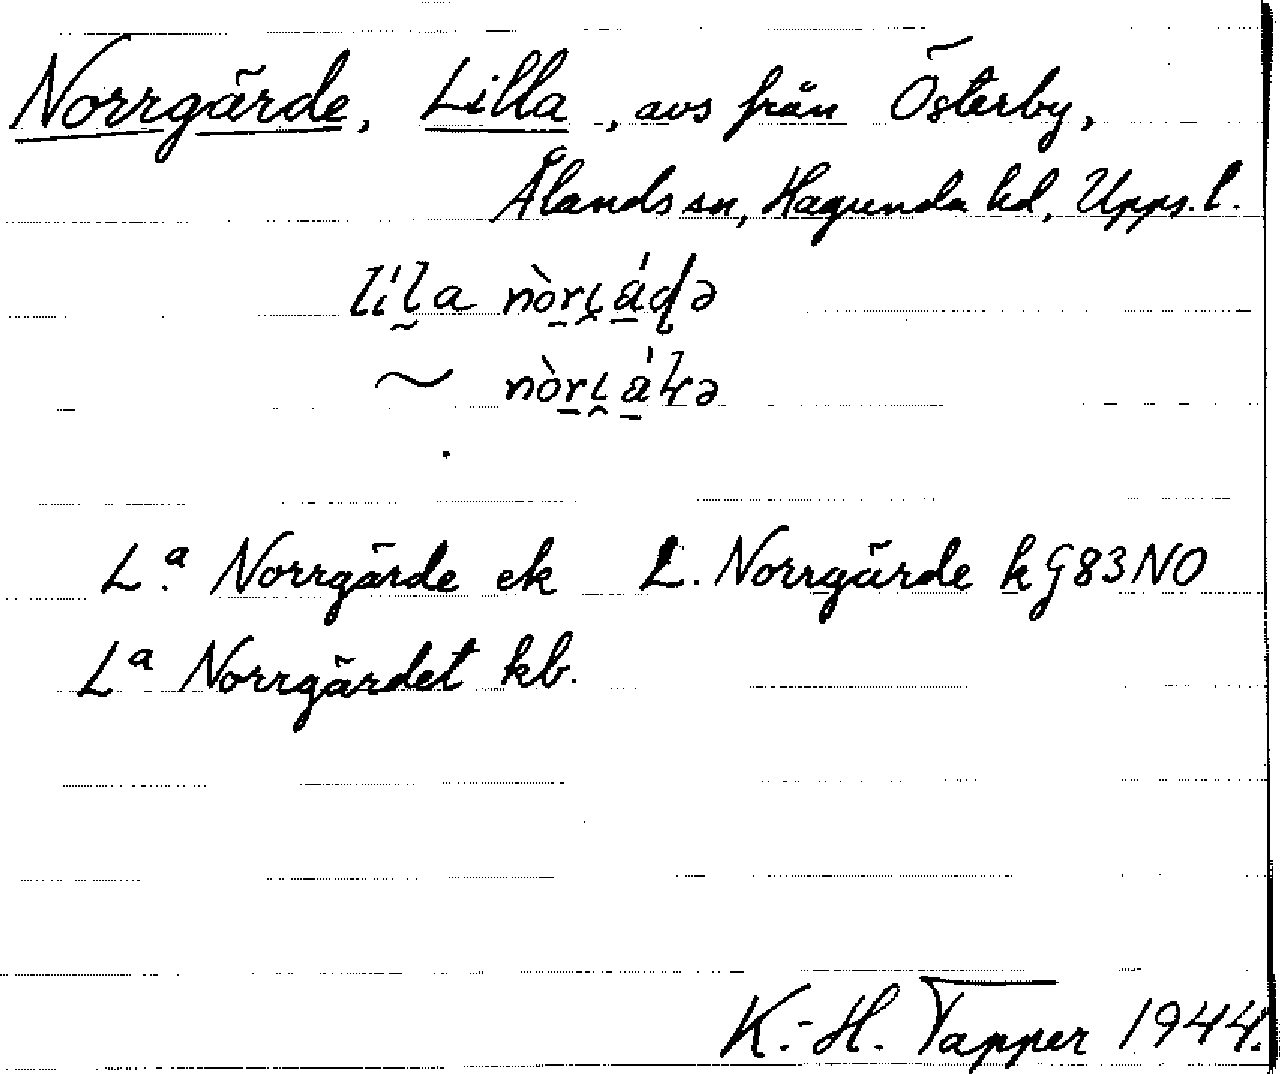 Norrgärde, Lilla, avs från Österby,
Ålands sn, Hagunda hd, Upps. l.
La. Norrgärde ek L. Norrgärde k G83NO
La Norrgärdet kb.
K.-H. Tapper 1944.